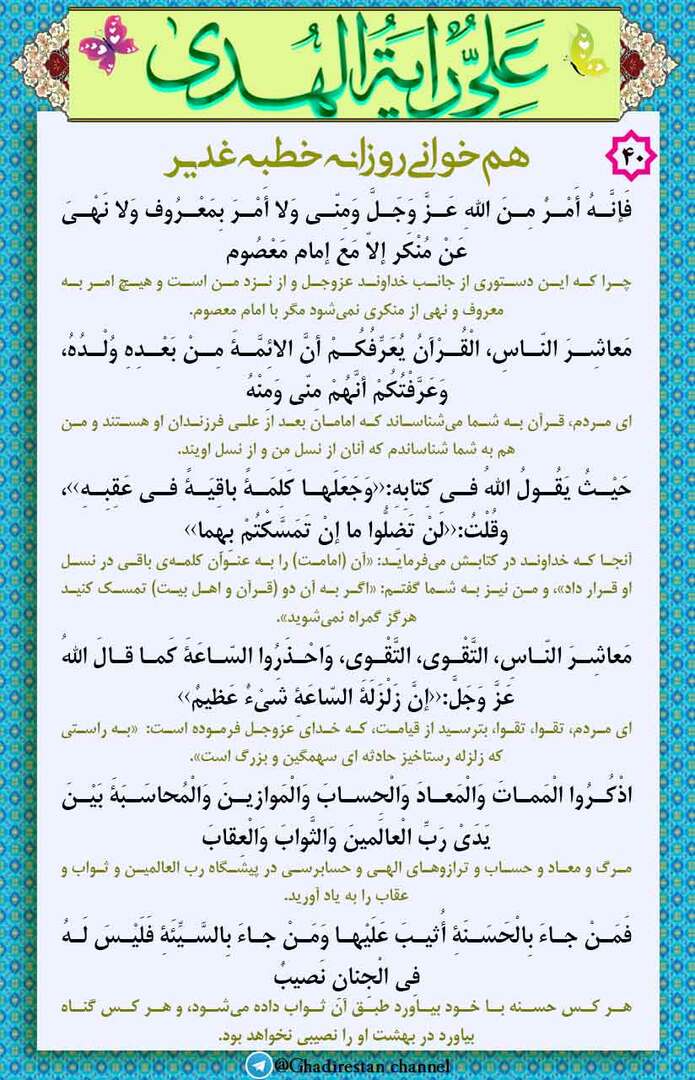 عَلِيٌّ رايَةُ الْهُدى
هم خوانے روزانہ خطبہ غدیر
۴۰
فَإنَّـهُ أَمْـرٌ مِـنَ اللهِ عَـزَّ وَجَـلَّ وَمِنّـى وَلا أَمْـرَ بِمَعْـرُوف وَلا نَهْـىَ
عَنْ مُنْكَر إلاّ مَعَ إمام مَعْصُوم
چـرا کـه ایـن دسـتوری از جانـب خداونـد عزوجـل و از نـزد مـن اسـت و هیـچ امـر بـه
معروف و نهی از منکری نمی‌شود مگر با امام معصوم.
مَعاشِـرَ النّـاسِ، الْقُـرْآنُ يُعَرِّفُكُـمْ أنَّ الائِمَّـةَ مِـنْ بَعْـدِهِ وُلْـدُهُ،
وَعَرَّفْتُكُمْ أنَّهُمْ مِنّى وَمِنْهُ
ای مـردم، قـرآن بـه شـما می‌شناسـاند کـه امامـان بعـد از علـی فرزنـدان او هسـتند و مـن
هم به شما شناساندم که آنان از نسل من و از نسل اویند.
حَيْـثُ يَقُـولُ اللهُ فـى كِتابِهِ:‹‹وَجَعَلَهـا كَلِمَـةً باقِيَـةً فـى عَقِبِـهِ››،
وقُلْتُ:‹‹لَنْ تَضِلُّوا ما إنْ تَمَسَّكْتُمْ بِهِما››
آنجـا کـه خداونـد در کتابـش می‌فرمایـد: «آن (امامـت) را بـه عنـوان کلمه‌ی باقی در نسـل
او قـرار داد»، و مـن نیـز بـه شـما گفتـم: «اگـر بـه آن دو (قـرآن و اهـل بیـت) تمسـک کنیـد
هرگز گمراه نمی‌شوید».
مَعاشِـرَ النّـاسِ، التَّقْـوى، التَّقْـوى، وَاحْـذَرُوا السّـاعَةَ كَمـا قـالَ اللهُ
عَزَّ وَجَلَّ:‹‹إنَّ زَلْزَلَةَ السّاعَةِ شَىْءٌ عَظيمٌ››
ای مـردم، تقـوا، تقـوا، بترسـید از قیامـت، کـه خـدای عزوجـل فرمـوده اسـت: «بـه راسـتی
که زلزله رستاخیز حادثه ای سهمگین و بزرگ است».
اذْكُـرُوا الْمَمـاتَ وَالْمَعـادَ وَالْحِسـابَ وَالْمَوازيـنَ وَالْمُحاسَـبَةَ بَيْـنَ
يَدَىْ رَبِّ الْعالَمينَ وَالثَّوابَ وَالْعِقابَ
مـرگ و معـاد و حسـاب و ترازوهـای الهـی و حسابرسـی در پیشـگاه رب العالمیـن و ثـواب و
عقاب را به یاد آورید.
فَمَـنْ جـاءَ بِالْحَسَـنَةِ أُثيـبَ عَلَيْهـا وَمَـنْ جـاءَ بِالسَّـيِّئَةِ فَلَيْـسَ لَـهُ
فِى الْجِنانِ نَصيبٌ
هـر کـس حسـنه بـا خـود بیـاورد طبـق آن ثـواب داده می‌شـود، و هـر کـس گنـاه
بیاورد در بهشت او را نصیبی نخواهد بود.
@Ghadirestan channel